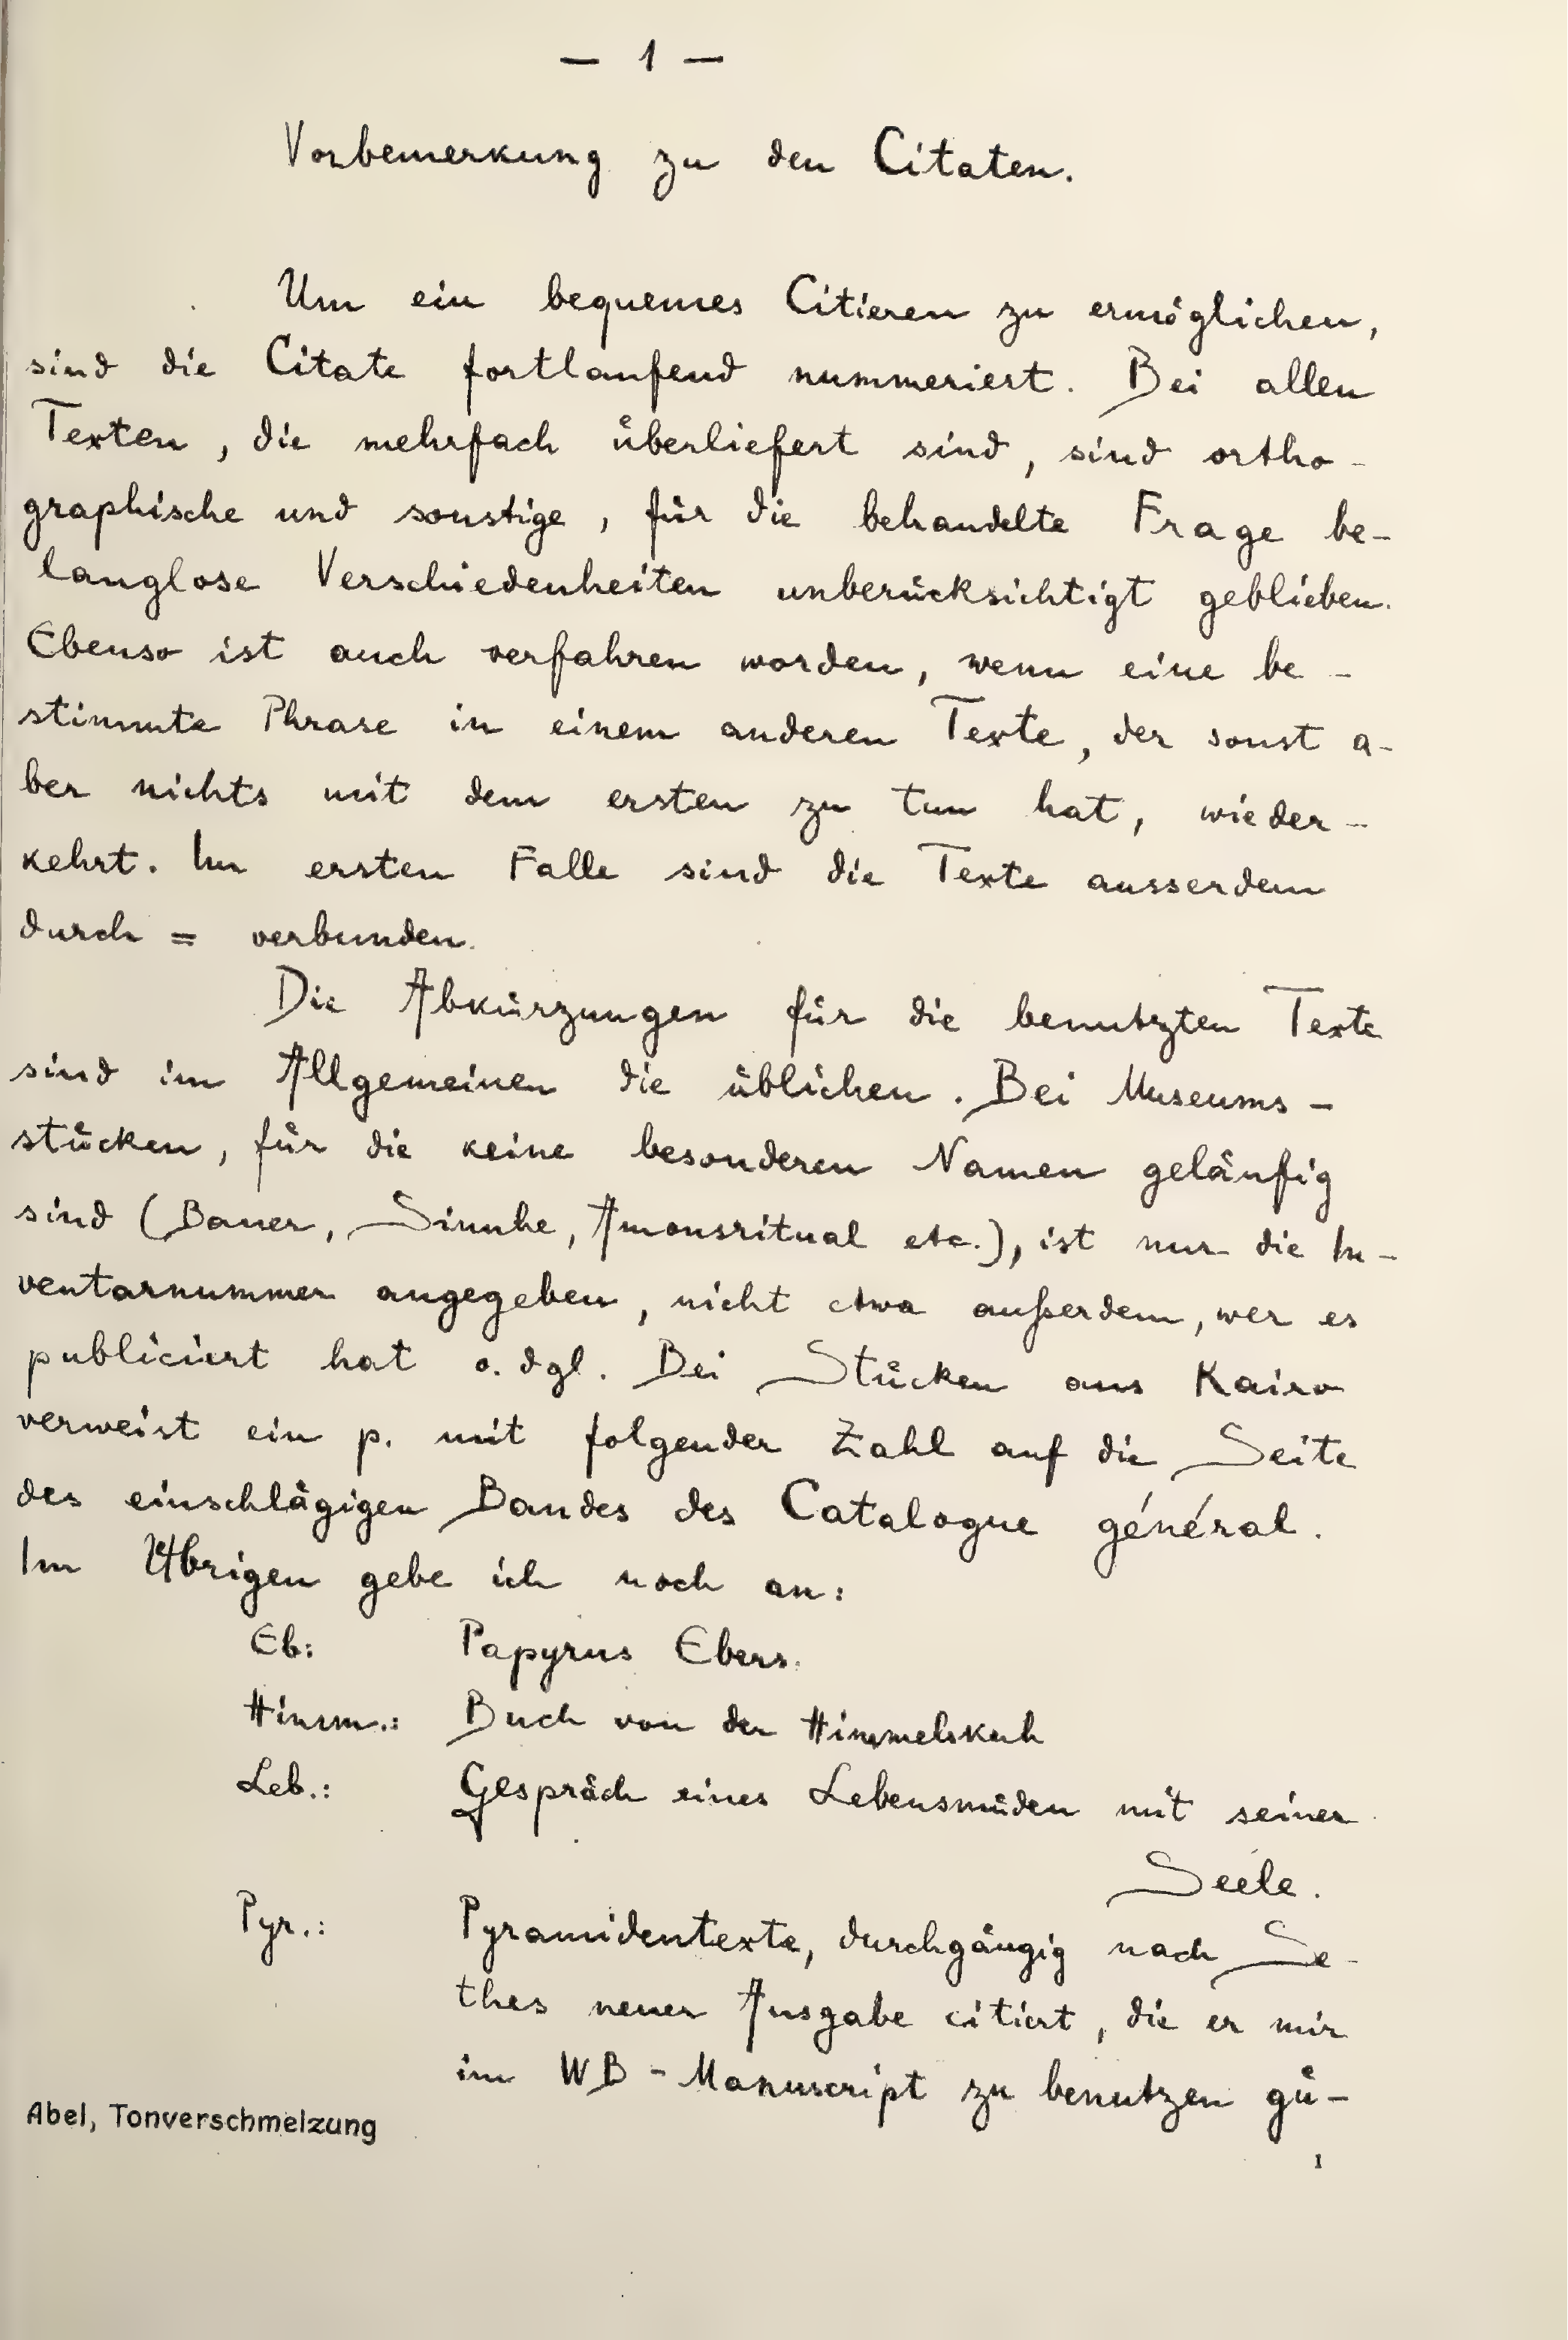 — 1 —
Vorbemerkung zu den Citaten.
Um ein bequemes Citieren zu ermöglichen,
sind die Citate fortlaufend nummeriert. Bei allen
Texten, die mehrfach überliefert sind, sind ortho-
graphische und sonstige, für die behandelte Frage be-
langlose Verschiedenheiten unberücksichtigt geblieben.
Ebenso ist auch verfahren worden, wenn eine be-
stimmte Phrase in einem anderen Texte, der sonst a-
ber nichts mit dem ersten zu tun hat, wieder-
kehrt. Im ersten Falle sind die Texte ausserdem
durch = verbunden.
Die Abkürzungen für die benutzten Texte
sind im Allgemeinen die üblichen. Bei Museums-
stücken, für die keine besonderen Namen geläufig
sind (Bauer, Sinuhe, Amonsritual etc.), ist nur die In-
ventarnummer angegeben, nicht etwa außerdem, wer es
publiciert hat o. dgl. Bei Stücken aus Kairo
verweist ein p. mit folgender Zahl auf die Seite
des einschlägigen Bandes des Catalogue général.
Im Übrigen gebe ich noch an:
Eb: Papyrus Ebers.
Himm.: Buch von der Himmelskuh
Leb.: Gespräch eines Lebensmüden mit seiner
Seele.
Pyr.: Pyramidentexte, durchgängig nach Se-
thes neuer Ausgabe citiert, die er mir
im WB-Manuscript zu benutzen gü-
Abel, Tonverschmelzung
1